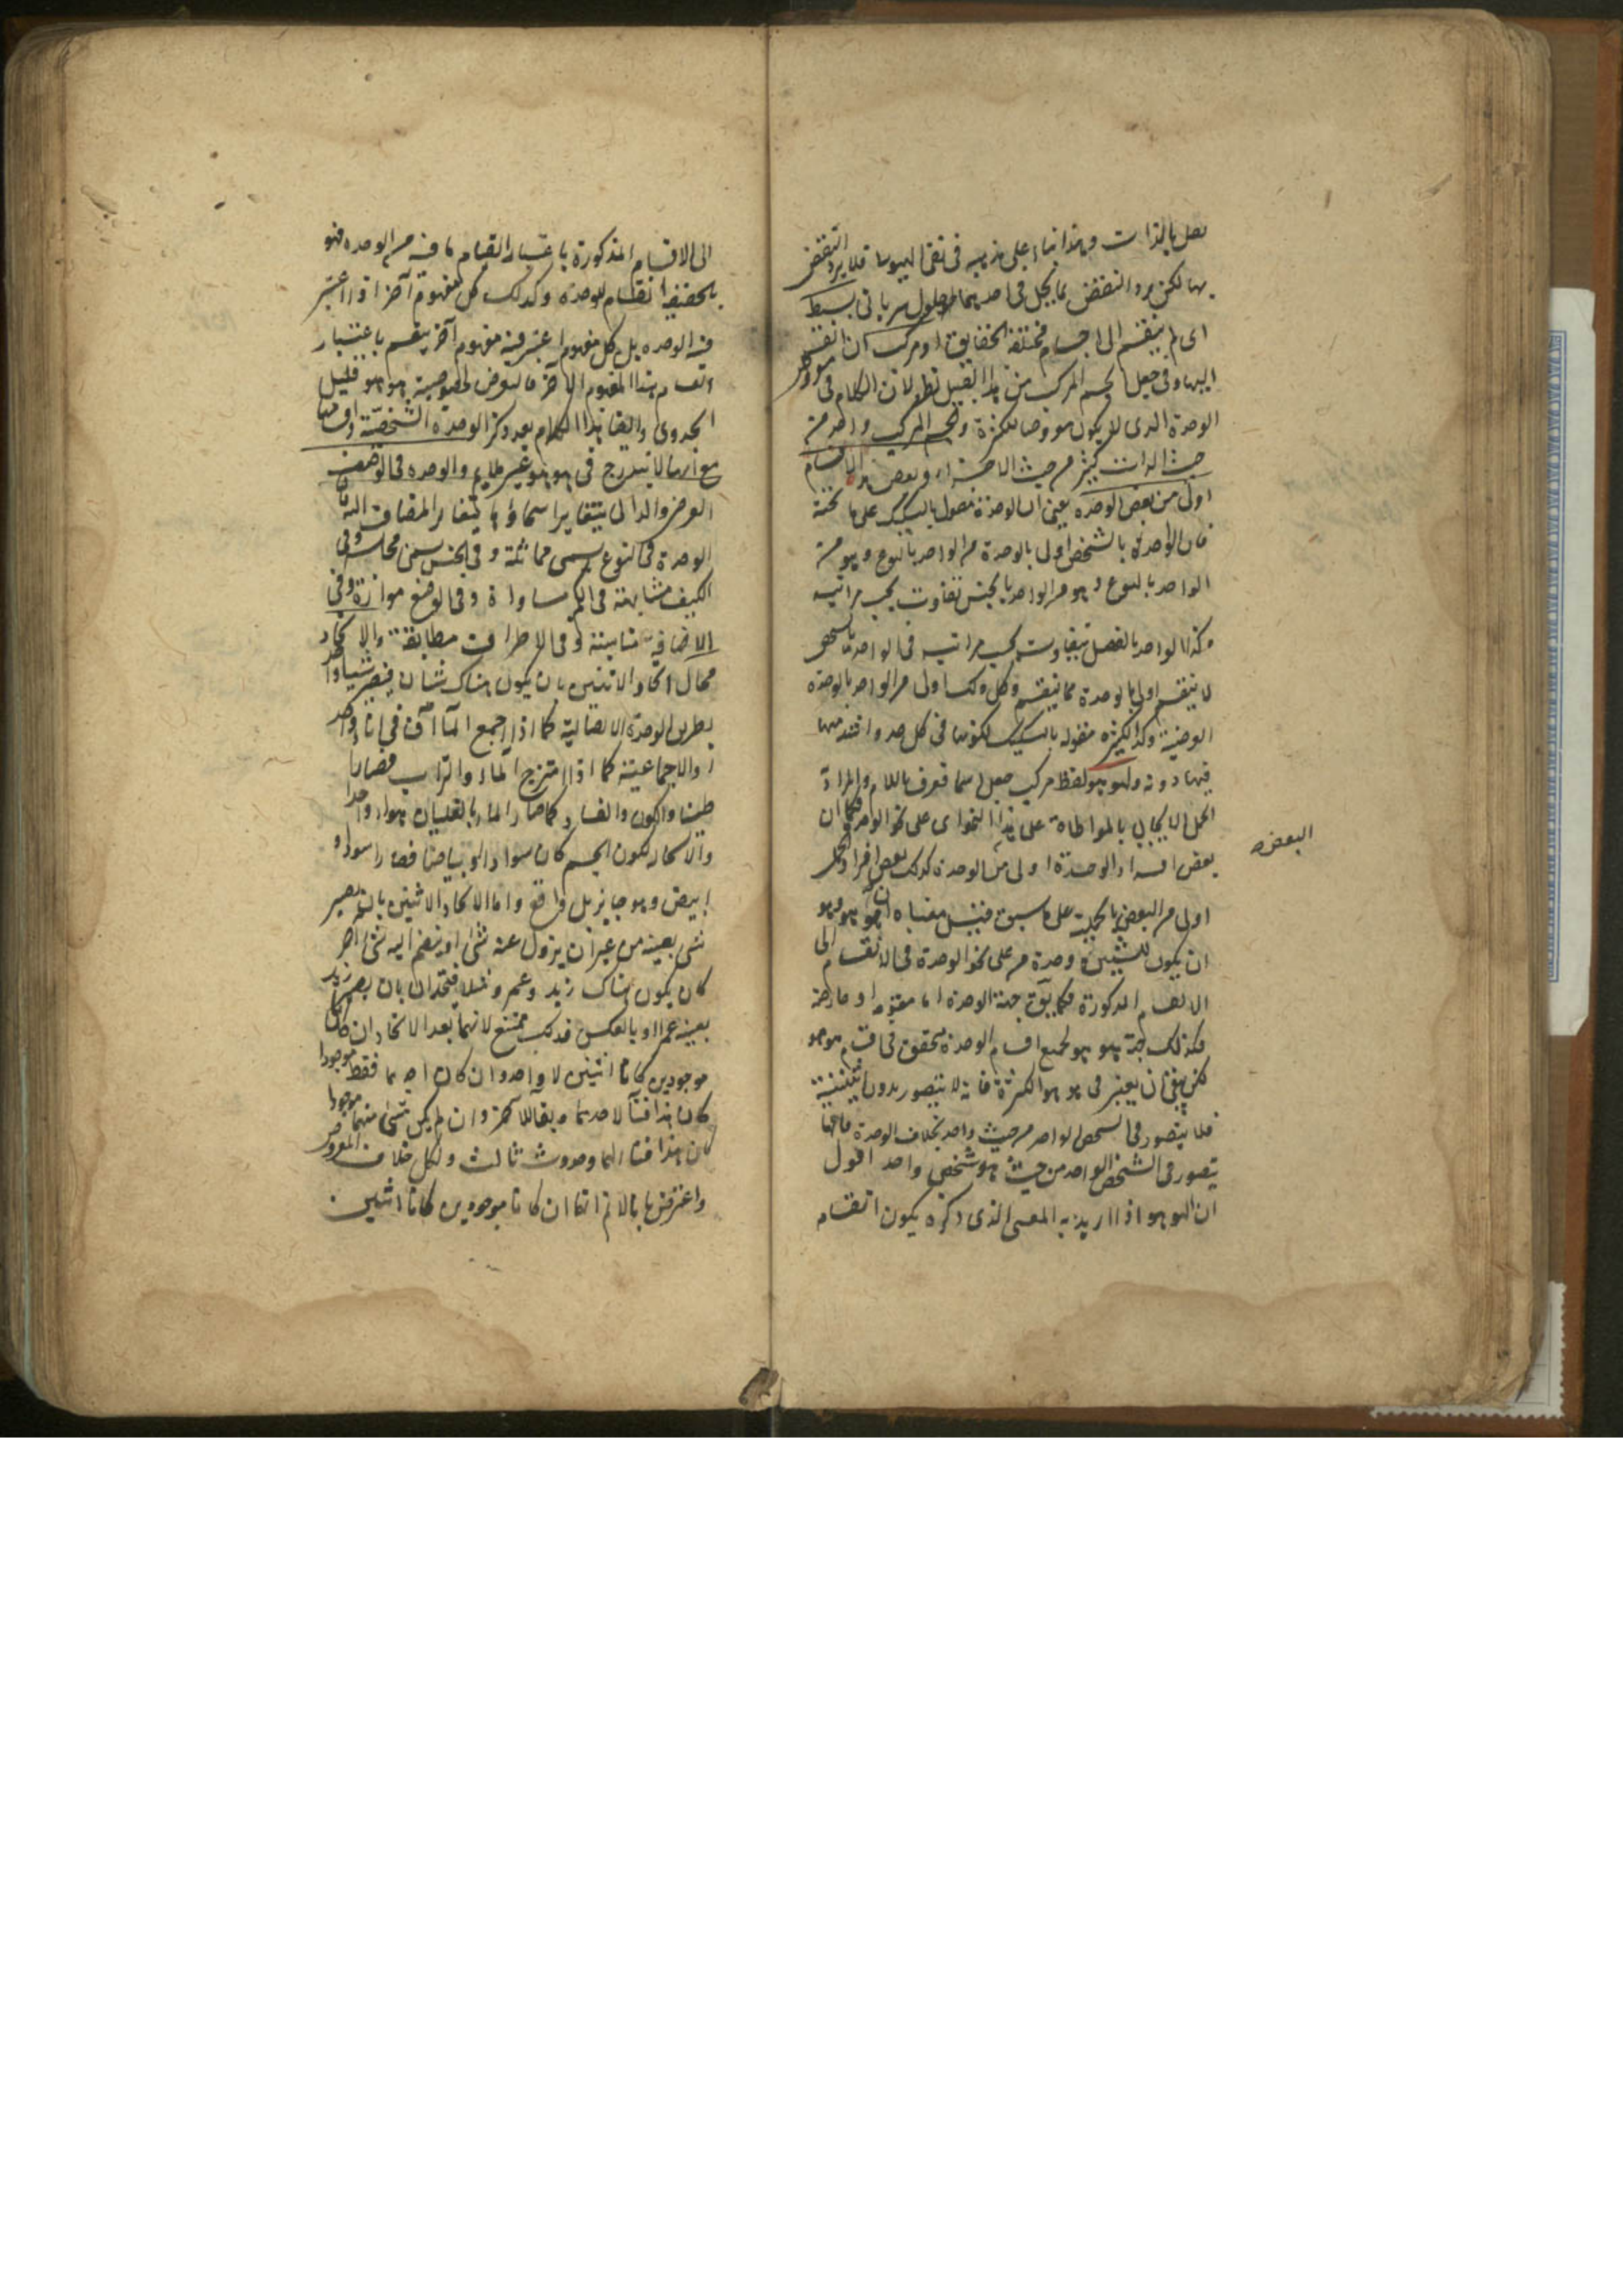 بالذات وهذا بناء على مذهبه في نفى الهيولى فلا يرد النقض
بها لكن يرد النقض بما يحل في احديهما حلول سرياني بسيط
اى لم ينقسم الى اجسام مختلفة الحقايق او مركب ان انقسم
اليها وفى جعل الجسم المركب من هذا القبيل نظر لان الكلام فى
الوحدة الذى لا يكون معروضا للكثرة والجسم المركب واحد من
حيث الذات كثير من حيث الاجزاء وبعض هذه الاقسام
اولى من بعض بالوحدة يعنى ان الوحدة مقول بالتشكيك على ما تحته
فان الواحد بالشخص اولى بالوحدة من الواحد بالنوع وهو من
الواحد بالنوع وهو من الواحد بالجنس تفاوت بحسب مراتبه
وكذا الواحد بالفصل يتفاوت بحسب مراتبه فى الواحد بالشخص
لا ينقسم اولى بالوحدة مما ينقسم وكل ذلك اولى من الواحد بالوحدة
العرضية وكذا الكثرة مقوله بالتشكيك لكونها فى كل عدد اشد منها
فيما دونه والهوهو لفظ مركب جعل اسما فعرف باللام والمراد
الحمل الايجابى بالمواطاة على هذا النحو اى على نحو الوحدة فكما ان
بعض افراد الوحدة اولى من الوحدة كذلك بعض افراد الحمل
البعض
اولى من البعض بالحمل على ما سبق فقيل معناه ان هو هو
ان يكون للشيئين وحدة من على نحو الوحدة فى الانقسام الى
الاقسام المذكورة فكما يوتى جهة الوحدة اما مقومة او عارضة
فكذلك جهة هو هو لجميع اقسام الوحدة يتحقق فى اقسام هو هو
لكن ينبغى ان يعتبر فى هو هو الكثرة فانه لا يتصور بدون اثنينية
فلا يتصور فى الشخص الواحد من حيث واحد بخلاف الوحدة فانها
يتصور فى الشخص الواحد من حيث هو شخص واحد اقول
ان الهوهو اذا اريد به المعنى الذى ذكره يكون انقسام
الى الاقسام المذكورة باعتبار انقسام ما فيه من الوحدة فهو
بالحقيقة انقسام للوحدة وكذلك كل مفهوم آخر اذا اعتبر
فيه الوحدة بل كل مفهوم اعتبر فيه مفهوم آخر ينقسم باعتبار
انقسام هذا المفهوم الاخر فالتعرض لخصوصية هو هو قليل
الجدوى وايضا هذا الكلام بعد ذكر الوحدة الشخصية
مع انها لا تندرج فى هو هو غير ملايم والوحدة فى الوصف
العرضى والذاتى يتغاير اسماؤها بتغاير المضاف اليه فان
الوحدة فى النوع يسمى مماثلة وفى الجنس يسمى مجانسة وفى
الكيف مشابهة وفى الكم مساواة وفى الوضع موازاة وفى
الاضافة مناسبة وفى الاطراف مطابقة والاتحاد
محال اتحاد الاثنين بان يكون هناك شيئان فيصير شيئا واحدا
بطريق الوحدة الاتصالية كما اذا جمع الماآن فى اناء واحد
او الاجتماعية كما اذا امتزج الماء والتراب فصارا
طينا والكون والفساد كما صار الماء بالغليان هواء واحدا
والاستحالة ككون الجسم كان سوادا او بياضا فصار اسود او
ابيض وهو جايز بل واقع واما الاتحاد الاثنين بان يصير
شئ بعينه من غير ان يزول عنه شئ او ينضم اليه شئ آخر
كان يكون هناك زيد وعمرو مثلا فيتحدان بان يصير زيد
بعينه عمرا او بالعكس فذلك ممتنع لانهما بعد الاتحاد ان كانا
موجودين كانا اثنين لا واحد وان كان احدهما فقط موجودا
كان هذا فناء لاحدهما وبقاء للاخر وان لم يكن شئ منهما موجودا
كان هذا فناء لهما وحدوث ثالث والكل خلاف المفروض
واعترض بانا لا نم انهما ان كانا موجودين كانا اثنين